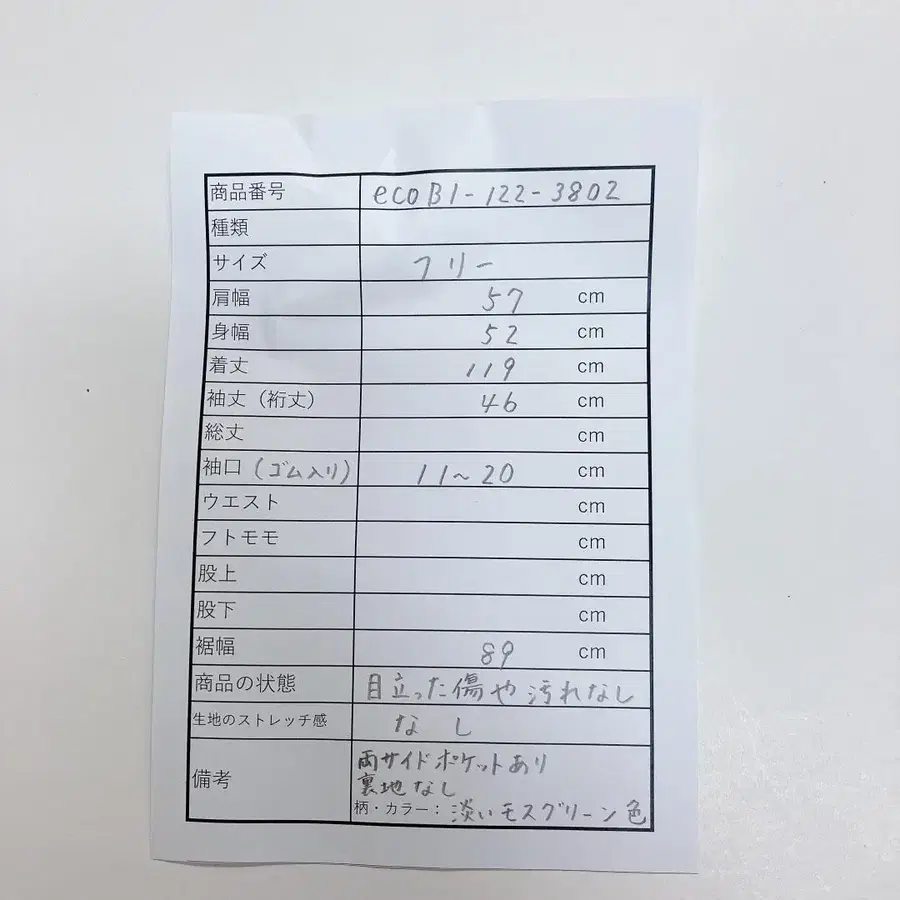 商品番号 ecoB1-122-3802
種類
サイズ フリー
肩幅 57 cm
身幅 52 cm
着丈 119 cm
袖丈（裄丈） 46 cm
総丈 cm
袖口（ゴム入り） 11~20 cm
ウエスト cm
フトモモ cm
股上 cm
股下 cm
裾幅 89 cm
商品の状態 目立った傷や汚れなし
生地のストレッチ感 なし
備考 両サイドポケットあり
裏地なし
柄・カラー：淡いモスグリーン色